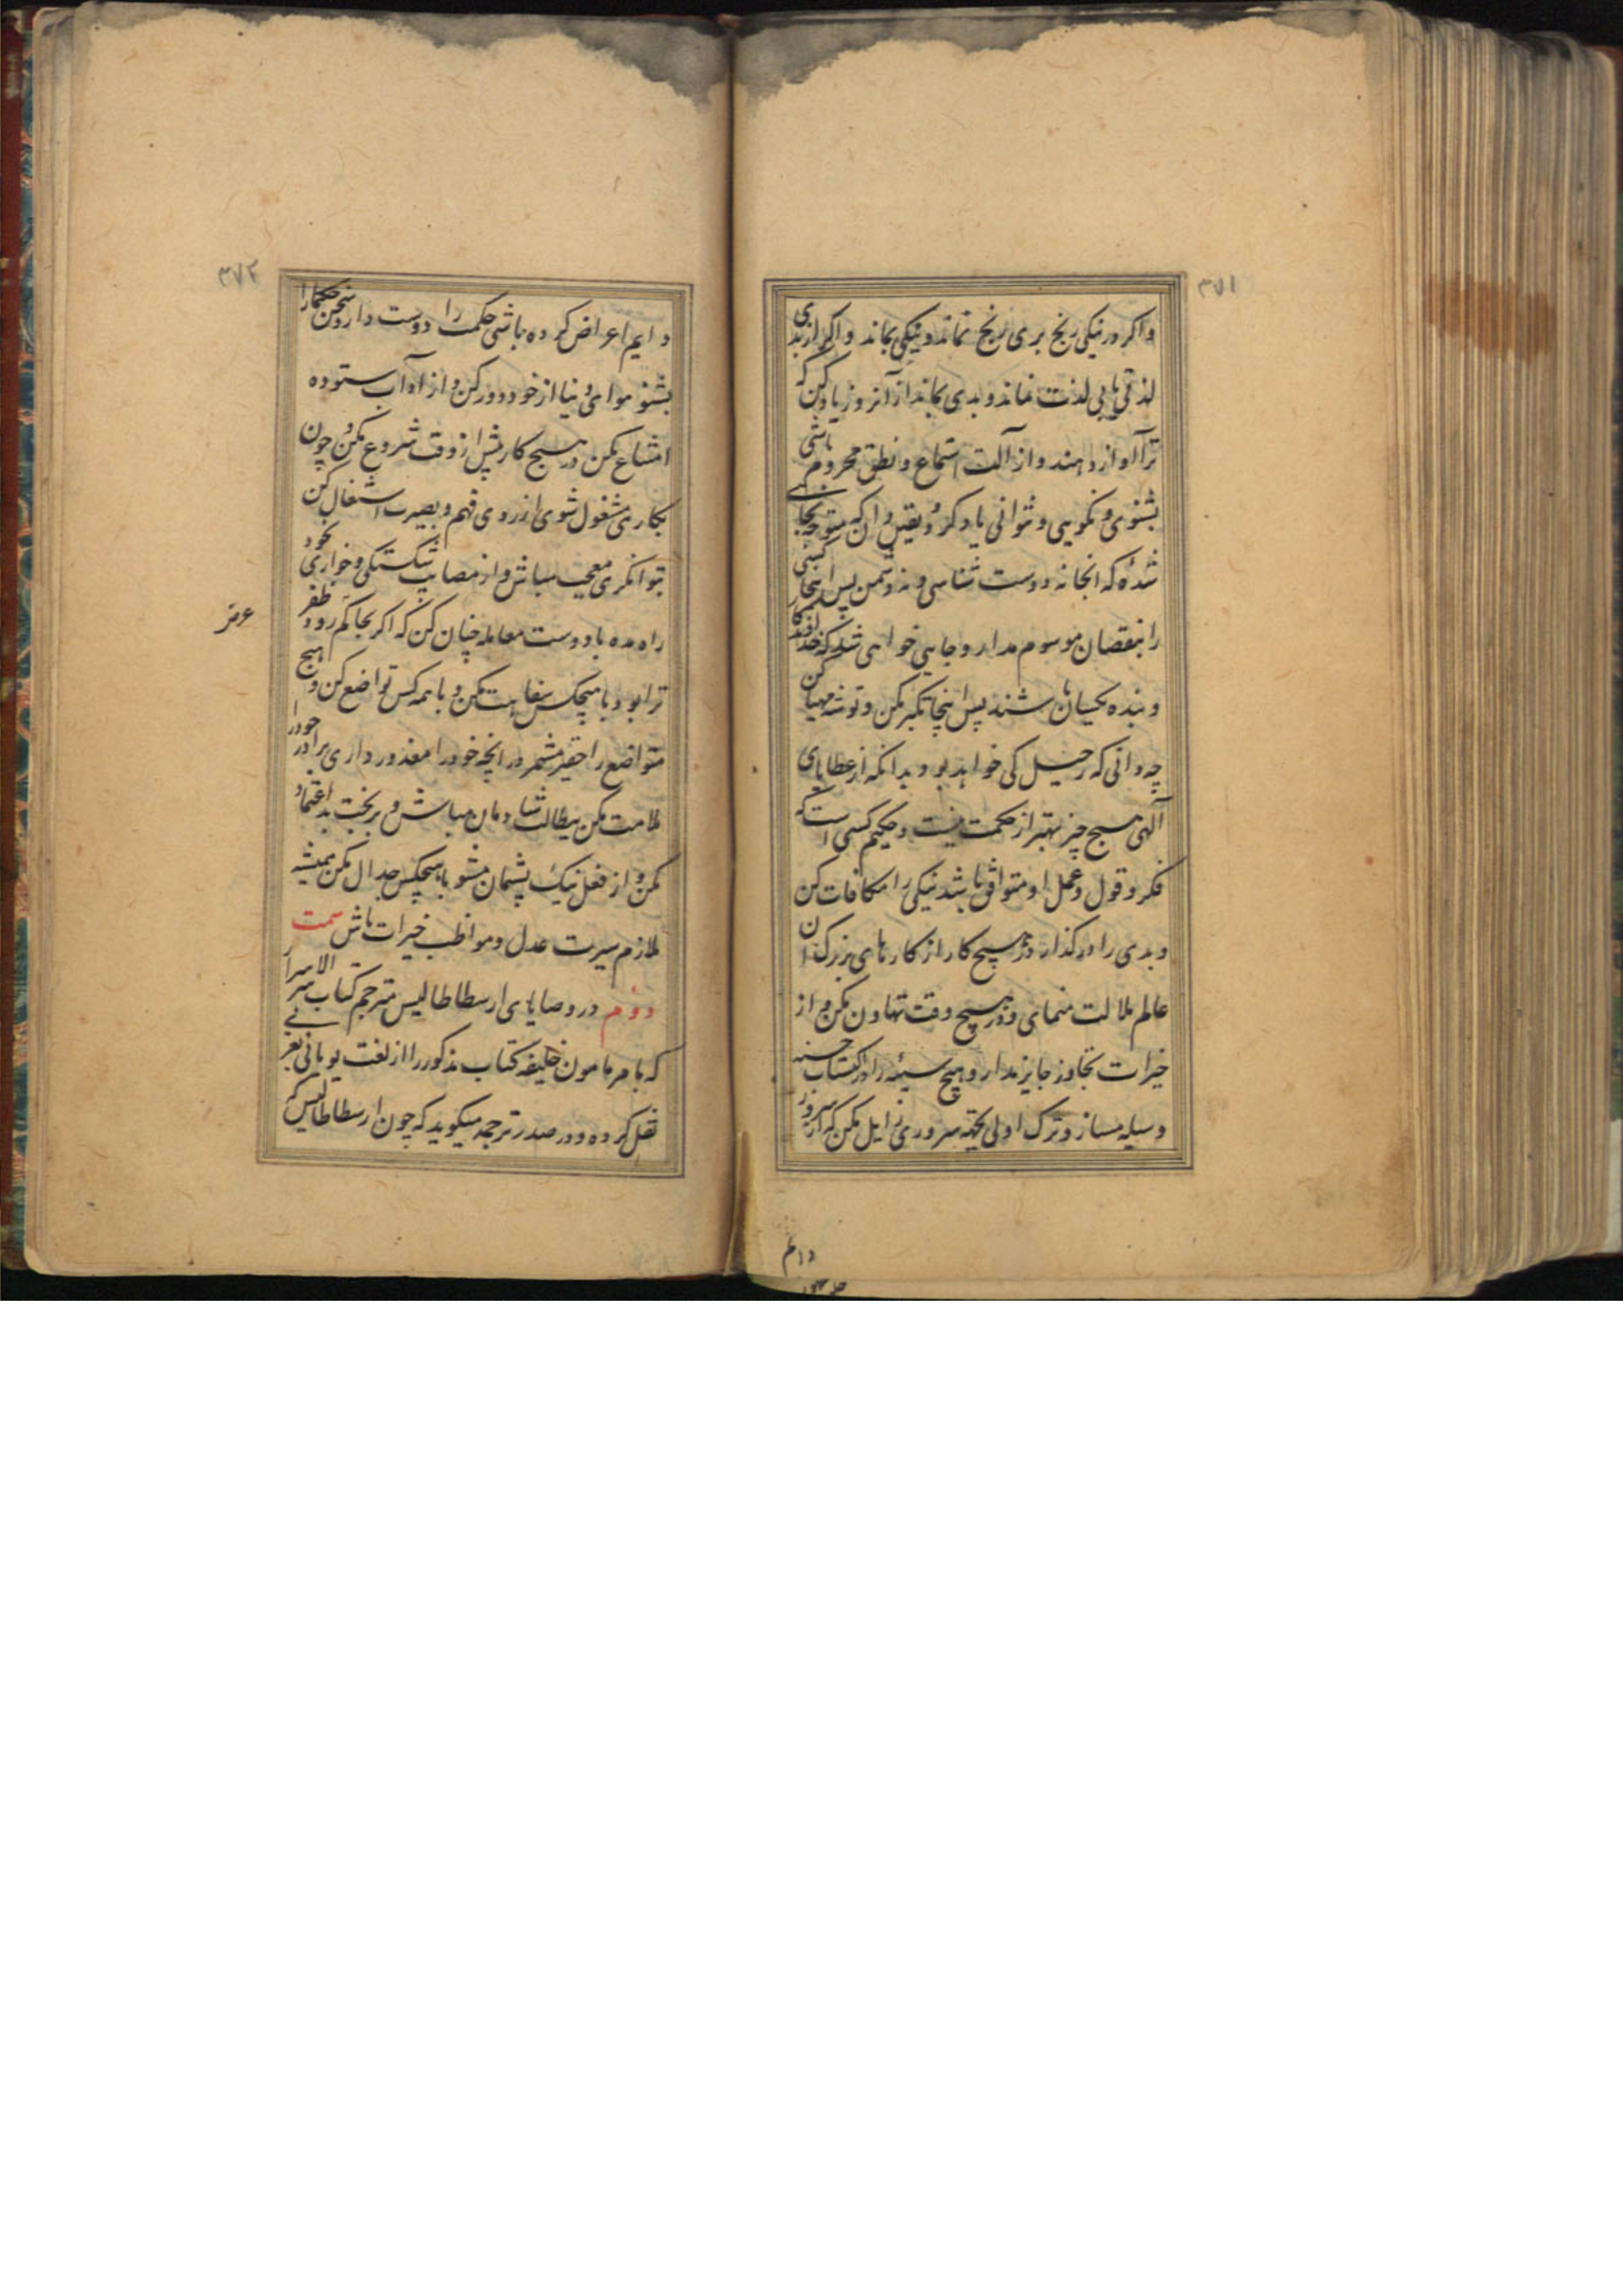 ۳۷۱
واکر در نیکی رنج بری رنج نماند و نیکی بماند واکر از بدی
لذتی یابی لذت نماند و بدی بماند از آنروز یاد کن که
ترا آواز دهند و از آلت استماع و نطق محروم باشی
نشنوی و نکویی و نتوانی یاد کرد و یقین دان که متوجه بجایی
شدهٔ که انجا نه دوست شناسی و نه دشمن پس اینجا کسی
را بنقصان موسوم مدار و جایی خواهی شد که خداوندکار
و بنده یکسان باشند پس اینجا تکبر مکن و توشه مهیا کن
چه دانی که رحیل کی خواهد بود و بدانکه از عطایای
آلهی هیچ چیز بهتر از حکمت نیست و حکیم کسی است که
فکر و قول و عمل او متوافق باشد نیکی را مکافات کن
و بدی را در کذار و در هیچ کار از کارهای بزرک این
عالم ملالت منمای و در هیچ وقت تهاون مکن و از
خیرات تجاوز جایز مدار و هیچ سیئه را در اکتساب حسنه
وسیله مساز و ترک اولی بجهة سروری زایل مکن که از سرور
دایم
۳۷۲
دایم اعراض کرده باشی حکمت را دوست دار و سخن حکما را
بشنو هوای دنیا از خود دور کن و از آداب ستوده
امتناع مکن در هیچ کار پیش از وقت شروع مکن و چون
بکاری مشغول شوی از روی فهم و بصیرت اشتغال کن
بتوانکری معجب مباش و از مصایب شکستکی و خواری بخود
راه مده با دوست معامله چنان کن که اکر بحاکم رود ظفر
ترا بود با هیچکس سفاهت مکن و با همه کس تواضع کن و هیچ
متواضع را حقیر مشمر در انچه خود را معذور داری برادر خود را
ملامت مکن ببطالت شادمان مباش و بر بخت بد اعتماد
مکن و از فعل نیک پشمان مشو با هیچکس جدال مکن همیشه
ملازم سیرت عدل و مواظب خیرات باش سمت
دوم در وصایای ارسطاطالیس مترجم کتاب سر الاسرار
که بامر مامون خلیفه کتاب مذکور را از لغت یونانی بعربی
نقل کرده و در صدر ترجمه میکوید که چون ارسطاطالیس که